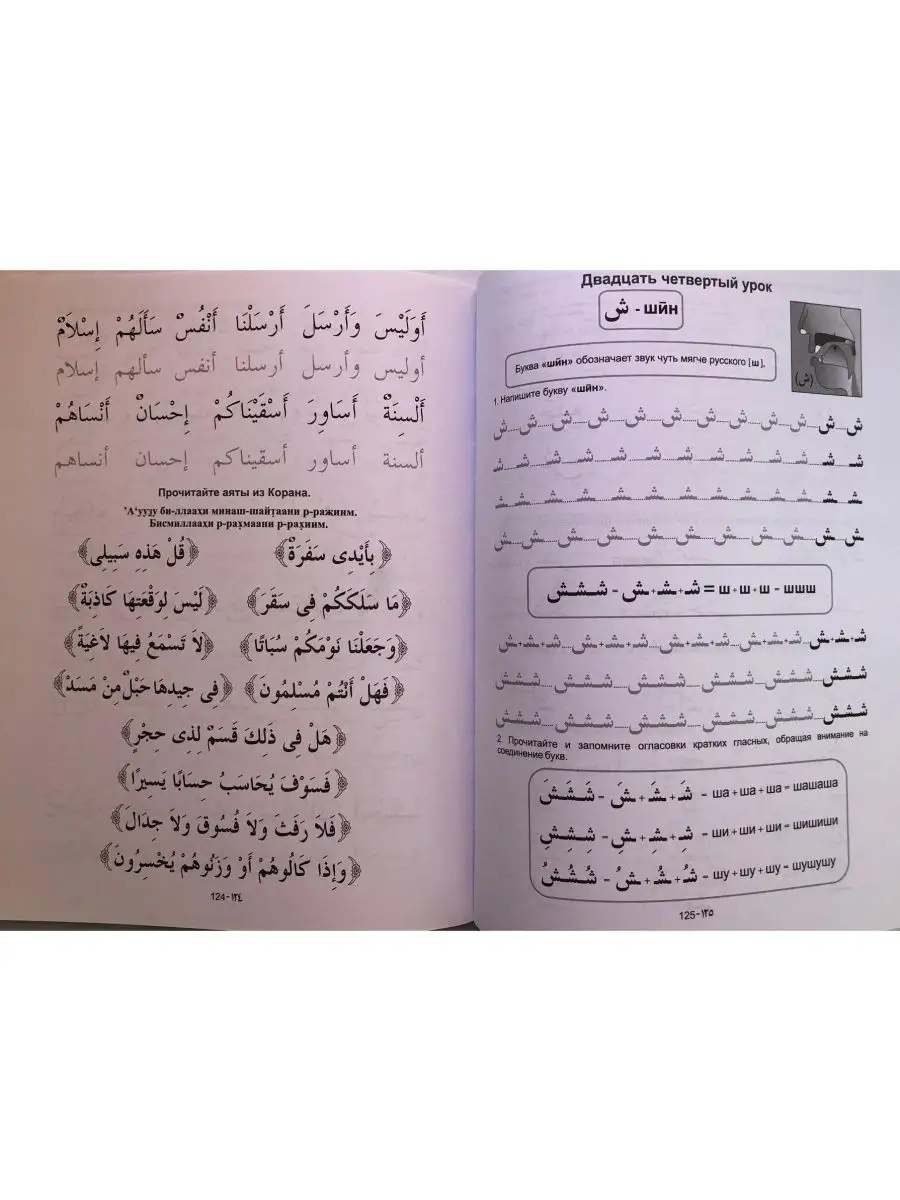 أَوَلَيْسَ وَأَرْسَلَ أَرْسَلْنَا أَنْفُسٌ سَأَلَهُمْ إِسْلَامٌ
أوليس وأرسل أرسلنا أنفس سألهم إسلام
أَلْسِنَةٌ أَسَاوِرَ أَسْقَيْنَاكُمْ إِحْسَانٌ أَنْسَاهُمْ
ألسنة أساور أسقيناكم إحسان أنساهم
Прочитайте аяты из Корана.
’А‘ууз̱у би-ллаахи минаш-шайт̣аани р-ражиим.
Бисмиллаахи р-рах̣маани р-рах̣иим.
﴿بِأَيْدِى سَفَرَةٌ﴾ ﴿قُلْ هَذِهِ سَبِيلِى﴾
﴿مَا سَلَكَكُمْ فِى سَقَرَ﴾ ﴿لَيْسَ لِوَقْعَتِهَا كَاذِبَةٌ﴾
﴿وَجَعَلْنَا نَوْمَكُمْ سُبَاتًا﴾ ﴿لاَ تَسْمَعُ فِيهَا لاَغِيَةً﴾
﴿فَهَلْ أَنْتُمْ مُسْلِمُونَ﴾ ﴿فِى جِيدِهَا حَبْلٌ مِنْ مَسَدْ﴾
﴿هَلْ فِى ذَلِكَ قَسَمٌ لِذِى حِجْرٍ﴾
﴿فَسَوْفَ يُحَاسَبُ حِسَابًا يَسِيرًا﴾
﴿فَلاَ رَفَثَ وَلاَ فُسُوقَ وَلاَ جِدَالَ﴾
﴿وَإِذَا كَالُوهُمْ أَوْ وَزَنُوهُمْ يُخْسِرُونَ﴾
124-١٢٤
Двадцать четвертый урок
ش - шӣн
Буква «шӣн» обозначает звук чуть мягче русского [ш].
(ش)
1. Напишите букву «шӣн».
ش.....ش.....ش.....ش.....ش.....ش.....ش.....ش.....ش.....ش.....ش
شـ.....شـ.....شـ.....شـ.....شـ.....شـ.....شـ.....شـ.....شـ.....شـ.....شـ
ـشـ.....ـشـ.....ـشـ.....ـشـ.....ـشـ.....ـشـ.....ـشـ.....ـشـ.....ـشـ.....ـشـ
ـش.....ـش.....ـش.....ـش.....ـش.....ـش.....ـش.....ـش.....ـش.....ـش
ш + ш + ш - шшш = شـ+ـشـ+ـش - ششش
شـ+ـشـ+ـش.....شـ+ـشـ+ـش.....شـ+ـشـ+ـش.....شـ+ـشـ+ـش.....شـ+ـشـ+ـش
ششش.....ششش.....ششش.....ششش.....ششش.....ششش
ششش.....ششش.....ششش.....ششش.....ششش.....ششش
2. Прочитайте и запомните огласовки кратких гласных, обращая внимание на
соединение букв.
شَـ + ـشَـ + ـشَ - شَشَشَ - ша + ша + ша = шашаша
شِـ + ـشِـ + ـشِ - شِشِشِ - ши + ши + ши = шишиши
شُـ + ـشُـ + ـشُ - شُشُشُ - шу + шу + шу = шушушу
125-١٢٥